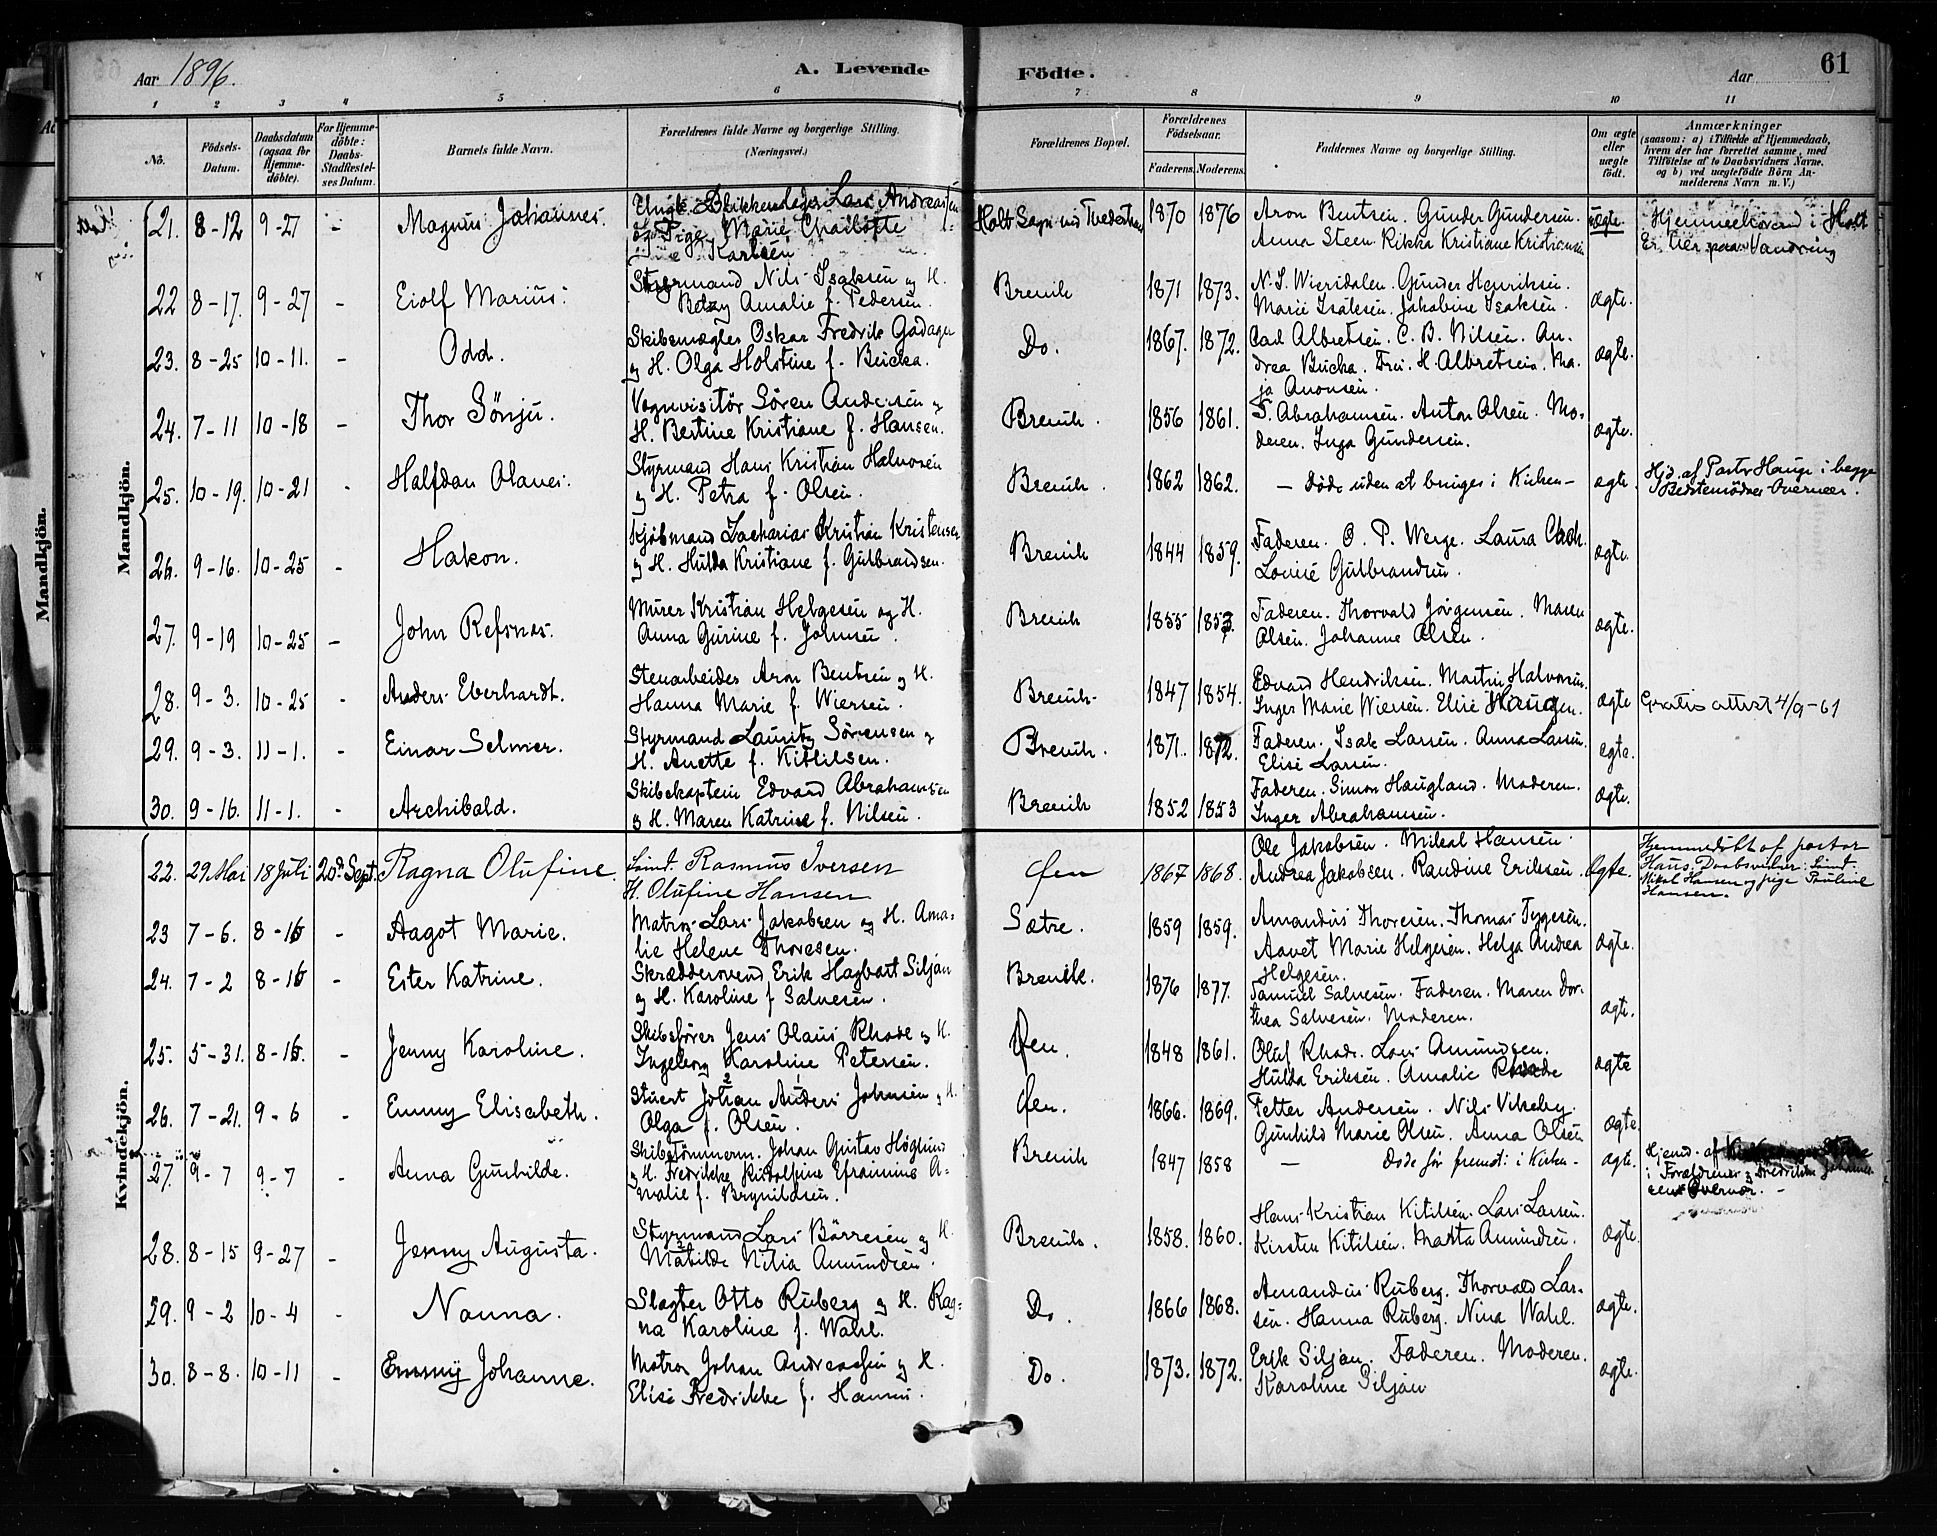 Aar 1896. A. Levende Födte. Aar 61
1 2 3 4 5 6 7 8 9 10 11
No. Födsels-Datum. Daabsdatum (ogsaa for Hjemme-döbte). For Hjemme-döbte: Daabs-Stadfæstel-ses Datum. Barnets fulde Navn. Forældrenes fulde Navne og borgerlige Stilling. (Næringsvei.) Forældrenes Bopæl. Forældrenes Födselsaar. Faderens. Moderens. Faddernes Navne og borgerlige Stilling. Om ægte eller uægte födt. Anmærkninger (saasom: a) i Tilfælde af Hjemmedaab, hvem der har forrettet samme, med Tilföielse af to Daabsvidners Navne, og b) ved uægtefödte Börn An-melderens Navn m. V.)
Mandkjön.
21. 8-12 9-27 - Magnus Johannes. Ungk. Blikkenslager Lars Andreassen
og Pige Marie Charlotte
Karlsen Holt Sogn ved Tvedestrand 1870 1876 Aron Bentsen. Gunder Gundersen.
Anna Steen Rikka Kristiane Kristiansen uægte. Hjemmehørend i Holt
Er her paa Vandring
22 8-17. 9-27 - Eiolf Marius. Styrmand Nils Isaksen og H.
Betzy Amalie f. Pedersen. Brevik 1871 1873. N. I. Wiersdalen. Gunder Henriksen.
Marie Isaksen. Jakobine Isaksen. ægte.
23. 8-25 10-11. - Odd. Skibsmægler Oskar Fredrik Gadager
og H. Olga Holstine f. Bucka. Do. 1867. 1872. Carl Albretsen. C. B. Nilsen. An-
drea Bucka. Fru. H. Albretsen. Ma-
ja Aronsen. ægte.
24. 7-11 10-18 - Thor Sönju. Vognvisitör Sören Andersen og
H. Bertine Kristiane f. Hansen. Brevik. 1856 1861. S. Abrahamsen. Anton Olsen. Mo-
deren. Inga Gundersen. ægte.
25. 10-19. 10-21 - Halfdan Olaves. Styrmand Hans Kristian Halvorsen
og H. Petra f. Olsen. Brevik. 1862 1862. - Døde uden at bringes i Kirken - ægte. Hjd. af Pastor Hauge i begge
Bedstemødres Overvær.
26. 9-16. 10-25 - Hakon. Kjöbmand Zacharias Kristian Kristensen
og H. Hulda Kristiane f. Gulbrandsen. Brevik 1844 1859. Faderen. O. P. Werge. Laura Cath.
Louise Gulbrandsen. ægte.
27. 9-19 10-25 - John Refsnes. Murer Kristian Helgesen og H.
Anna Gurine f. Johnsen. Brevik 1855 1853. Faderen. Thorvald Jörgensen. Maren
Olsen. Johanne Olsen. ægte.
28. 9-3. 10-25 - Anders Eberhardt. Stenarbeider Aron Bentsen og H.
Hanna Marie f. Wiersen. Brevik- 1847 1854. Edvard Hendriksen. Martin Halvorsen.
Inger Marie Wiersen. Elise Haugen. ægte Gratis attest 4/9-61
29. 9-3. 11-1. - Einar Selmer. Styrmand Lauritz Sörensen og
H. Anette f. Kittilsen. Brevik. 1871. 1872. Faderen. Isak Larsen. Anna Larsen.
Elise Larsen. ægte.
30. 9-16. 11-1. - Archibald. Skibskaptein Edvard Abrahamsen
og H. Maren Katrine f. Nilsen. Brevik 1852 1853 Faderen. Simon Haugland. Moderen.
Inger Abrahamsen. ægte.
Kvindekjön.
22. 29. Mai 18 Juli 20de Sept. Ragna Olufine. Sømd. Rasmus Iversen
H. Olufine Hansen Øen 1867 1868. Ole Jakobsen. Mikal Hansen.
Andrea Jakobsen. Randine Eriksen. Ægte. Hjemmedøbt af pastor
Haus. Daabsvidner: Sømd.
Mikal Hansen og pige Pauline
Hansen.
23 7-6. 8-16 - Aagot Marie. Matros Lars Jakobsen og H. Ama-
lie Helene Thoresen. Sætre. 1859 1859. Amandus Thoresen. Thomas Tygesen.
Aavet Marie Helgesen. Helga Andrea
Helgesen. ægte.
24. 7-2 8-16 - Ester Katrine. Skræddersvend Erik Hagbart Siljan
og H. Karoline f Salvesen. Brevik. 1876 1877. Samuel Salvesen. Faderen. Maren Dor-
thea Salvesen. Moderen. ægte.
25. 5-31. 8-16. - Jenny Karoline. Skibsfører Jens Olaus Rhode og H.
Ingeborg Karoline Petersen. Øen. 1848 1861. Oluf Rhode. Lars Amundsen.
Hulda Eriksen. Amalie Rhode ægte
26. 7-21. 9-6 - Emmy Elisabeth. Stuert Johan Anders Johnsen og H.
Olga f. Olsen. Øen. 1866. 1869. Petter Andersen. Nils Vikeby.
Gunhild Marie Olsen. Anna Olsen ægte.
27. 9-7 9-7 - Anna Gunhilde. Skibstömmerm. Johan Gustav Höglund
og H. Fredrikke Rudolfine Efraimine A-
malie f. Brynildsen. Brevik 1847 1858 - Døde før fremst. i Kirken - ægte. Hjemd. af
i Forældrenes og Fredrikke Johanne-
sens Overvær. -
28. 8-15 9-27 - Jenny Augusta. Styrmand Lars Börresen og H.
Matilde Nilia Amundsen. Brevik. 1858. 1860. Hans Kristian Kitilsen. Lars Larsen.
Kirsten Kitilsen. Marta Amundsen. ægte.
29. 9-2 10-4 - Nanna. Slagter Otto Ruberg og H. Rag-
na Karoline f. Wahl. Do. 1866 1868. Amandus Ruberg. Thorvald Lar-
sen. Hanna Ruberg. Nina Wahl. ægte.
30. 8-8. 10-11 - Emmy Johanne. Matros Johan Andreassen og H.
Elise Fredrikke f. Hansen. Do. 1873. 1872. Erik Siljan. Faderen. Moderen.
Karoline Siljan ægte.
Mandkjön.